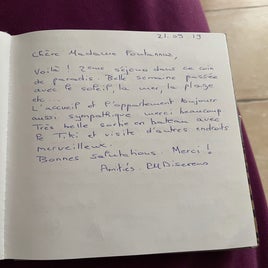 21.09.19
Chère Madame
Voilà ! 2ème séjour dans ce coin
de paradis. Belle semaine passée
avec le soleil, la mer, la plage
etc...
L'accueil et l'appartement toujours
aussi sympathique merci beaucoup
Très belle sortie en bateau avec
le Titi et visite d'autres endroits
merveilleux.
Bonnes salutations. Merci !
Amitiés.